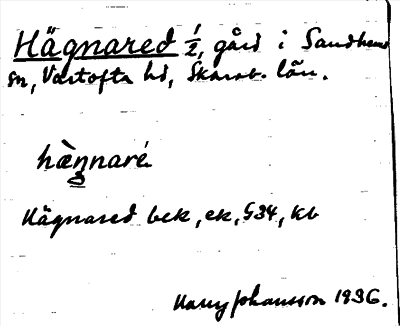 Hägnared 1/2, gård i Sandhems
sn, Vartofta hd, Skarab. län.
hæ̀nnaré
Hägnared bek, ek, G34, kb
Harry Johansson 1936.